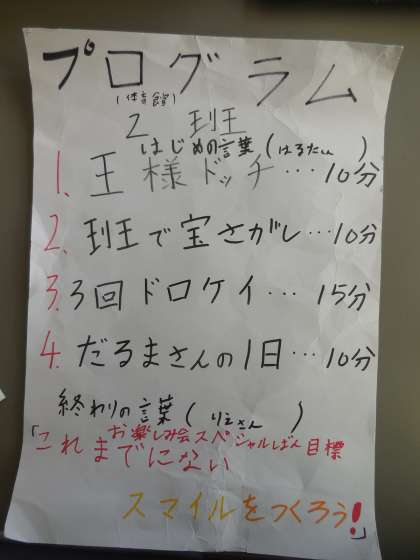 プログラム
(体育館)
2 班
はじめの言葉(はるたい)
1. 王様ドッチ…10分
2. 班で宝さがし…10分
3. 3回ドロケイ… 15分
4. だるまさんの1日…10分
終わりの言葉(りえさん)
お楽しみ会スペシャルばん目標
「これまでにない
スマイルをつくろう!」